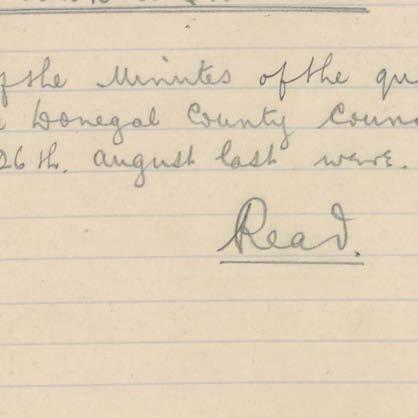 of the Minutes of the qu
Donegal County Counc
26th. august last were.
Read.